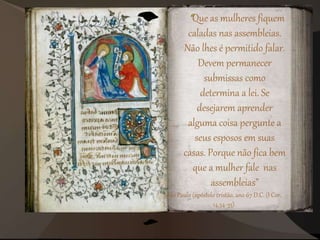 "Que as mulheres fiquem
caladas nas assembleias.
Não lhes é permitido falar.
Devem permanecer
submissas como
determina a lei. Se
desejarem aprender
alguma coisa pergunte a
seus esposos em suas
casas. Porque não fica bem
que a mulher fale nas
assembleias"
Paulo (apóstolo cristão, ano 67 D.C. (I Cor.
14,34-35)